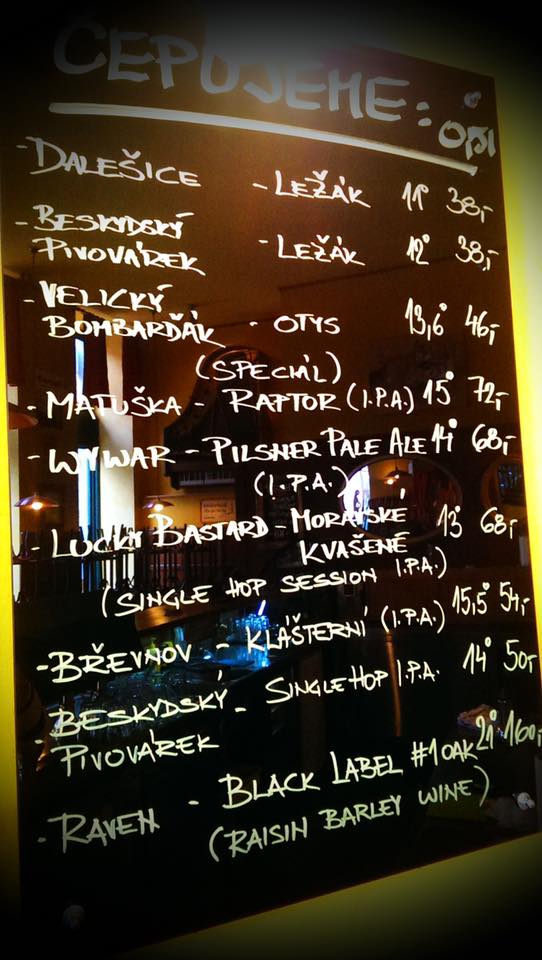 ČEPUJEME:
- DALEŠICE - LEŽÁK 11° 38,-
- BESKYDSKÝ
PIVOVÁREK - LEŽÁK 12° 38,-
- VELICKÝ
BOMBARĎÁK - OTYS 13,6° 46,-
(SPECIÁL)
- MATUŠKA - RAPTOR (I.P.A.) 15° 72,-
- WYWAR - PILSNER PALE ALE 14° 68,-
(I.P.A.)
- LUCKY BASTARD - MORAVSKÉ 13° 68,-
KVAŠENÉ
(SINGLE HOP SESSION I.P.A.)
- BŘEVNOV - KLÁŠTERNÍ (I.P.A.) 15,5° 54,-
- BESKYDSKÝ - SINGLE HOP I.P.A. 14° 50,-
PIVOVÁREK
- RAVEN - BLACK LABEL #1 OAK 21° 160,-
(RAISIN BARLEY WINE)